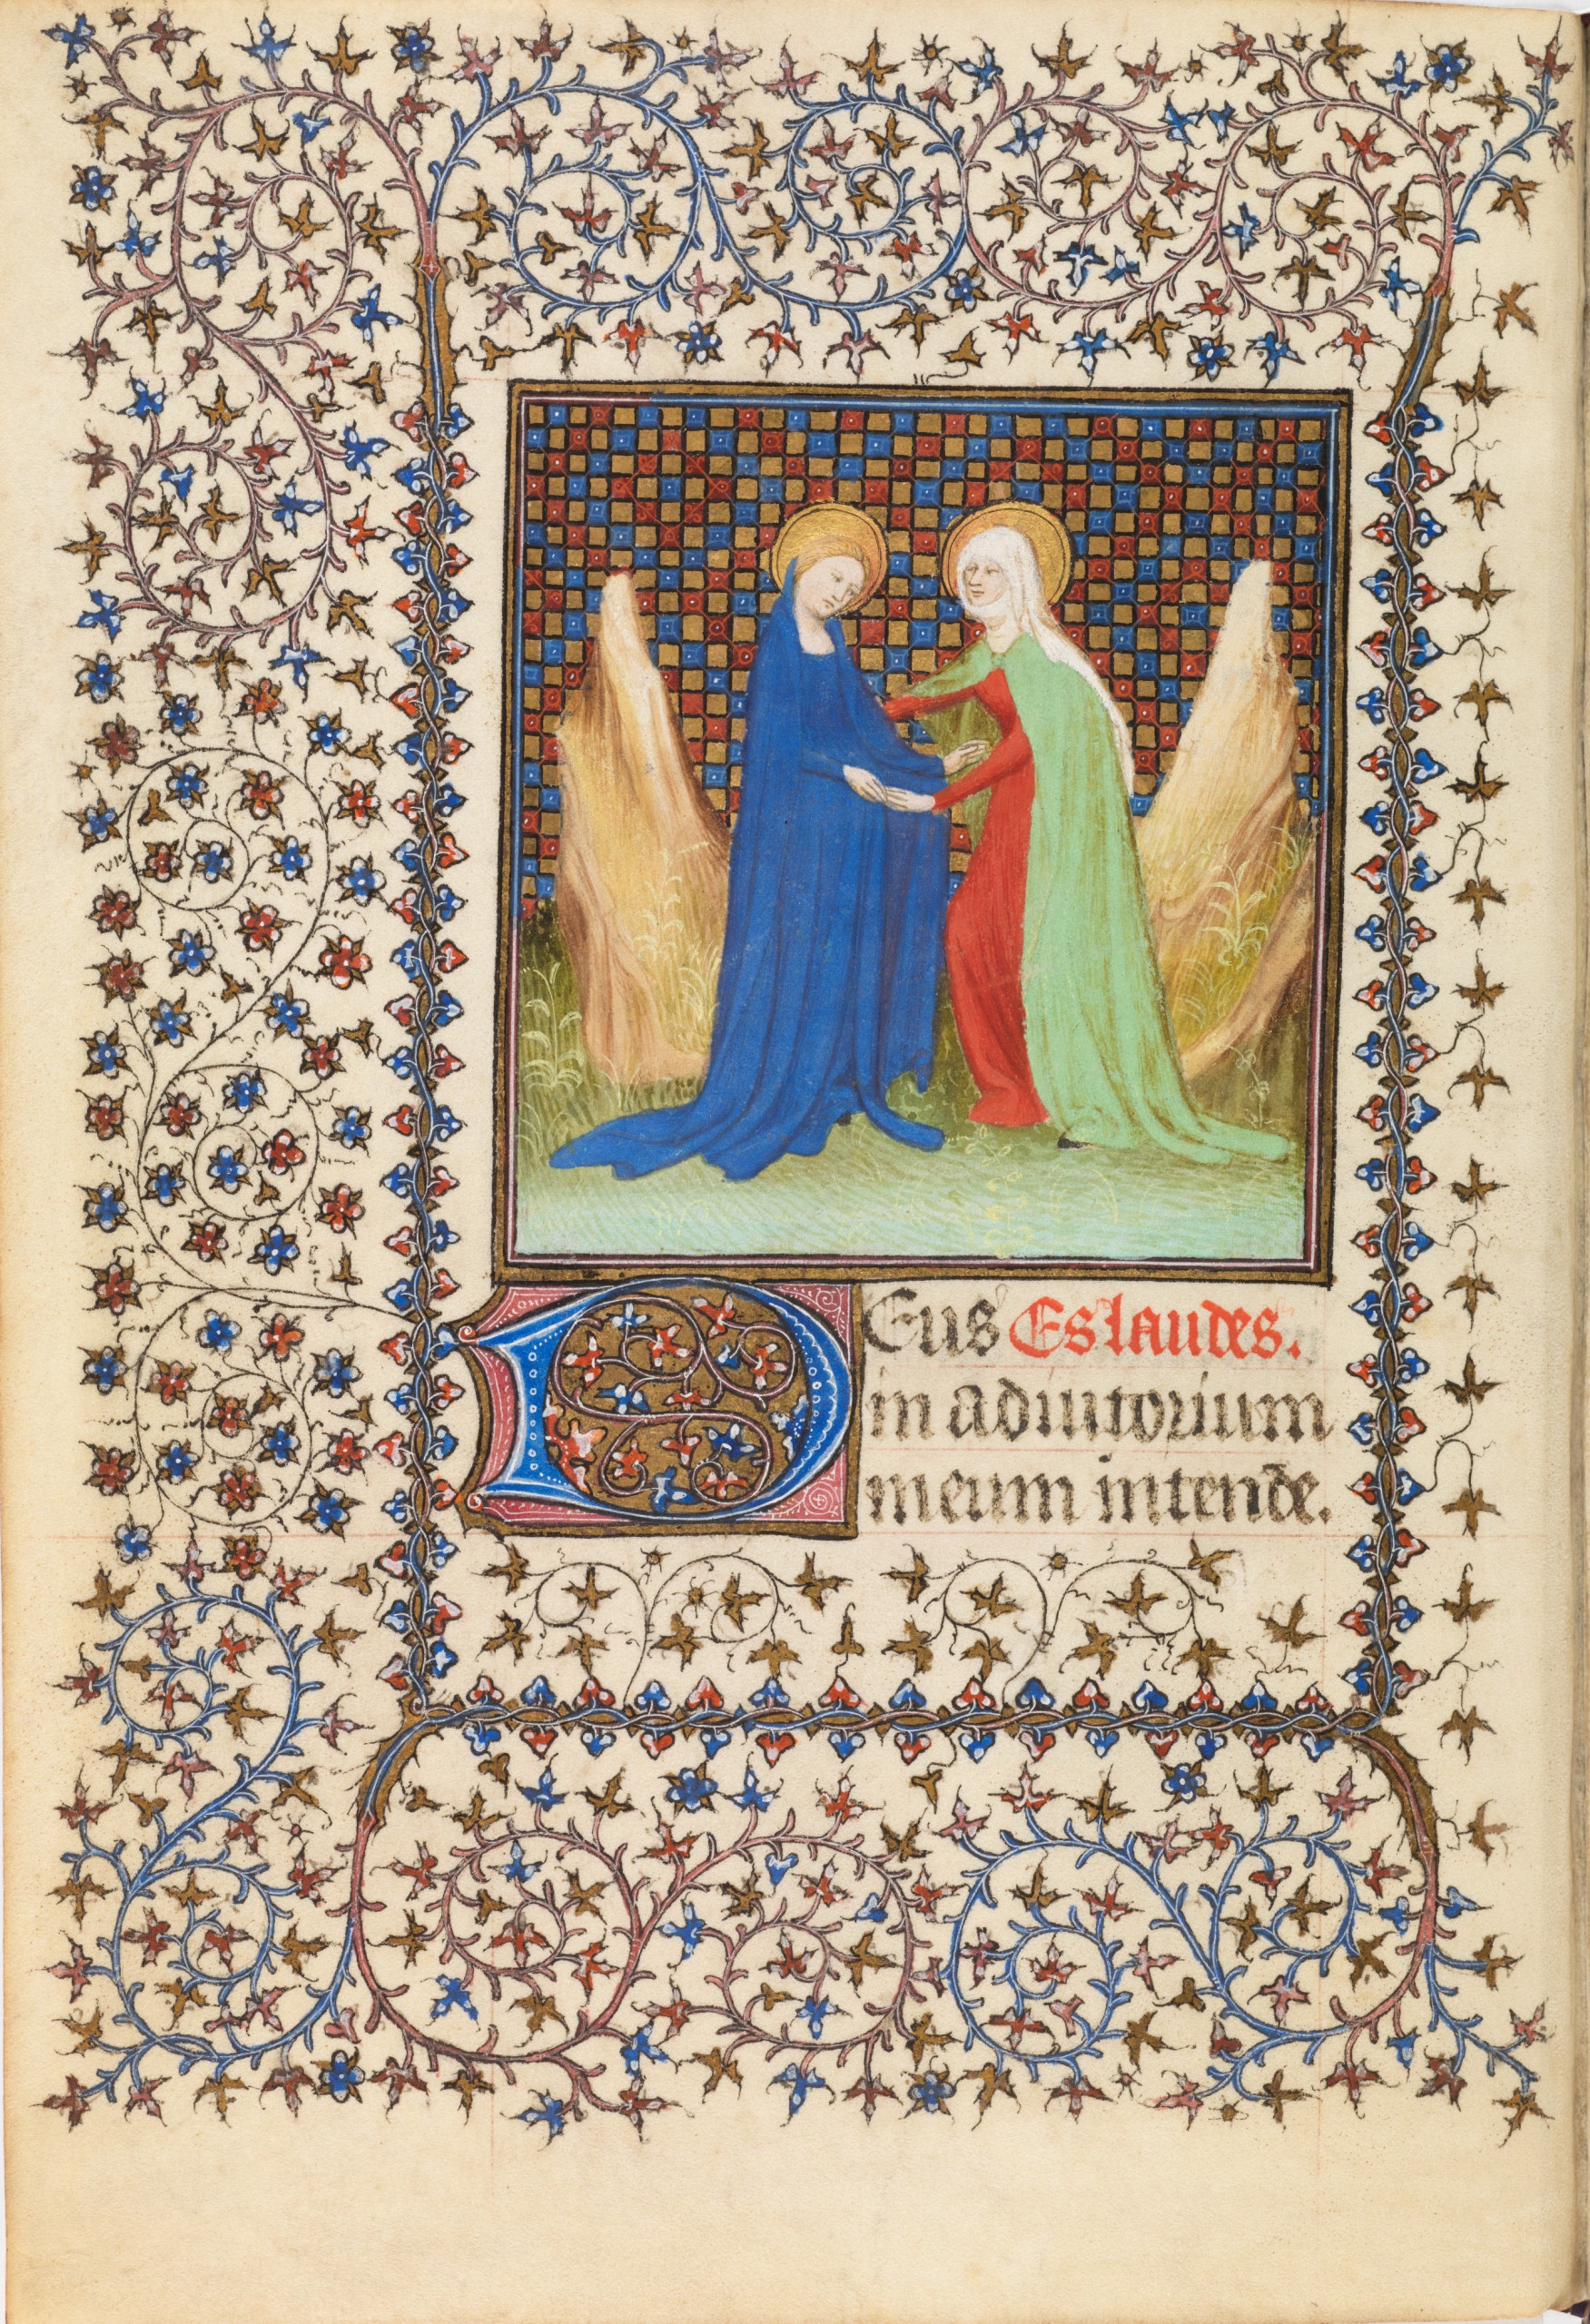 DEus Es laudes.
in adiutorium
meum intende.